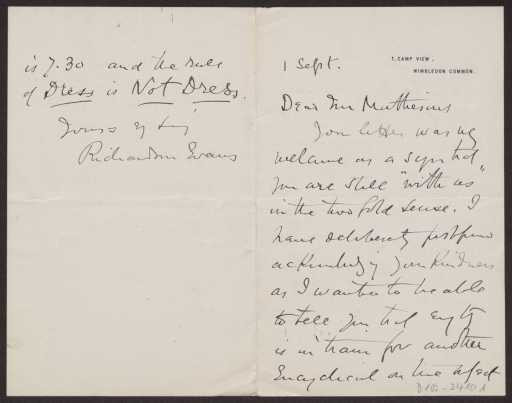 1 Sept.
1, CAMP VIEW,
WIMBLEDON COMMON.
Dear Mr Muthesius
Your letter was very
welcome as a sign that
you are still "with us"
in the two fold sense. I
have deliberately postponed
acknowledging your kindness
as I wanted to be able
to tell you that
is in train for another
Encyclical on the
D102-24101
is 7.30 and the rule
of Dress is Not Dress.
Yours
Richardson Evans